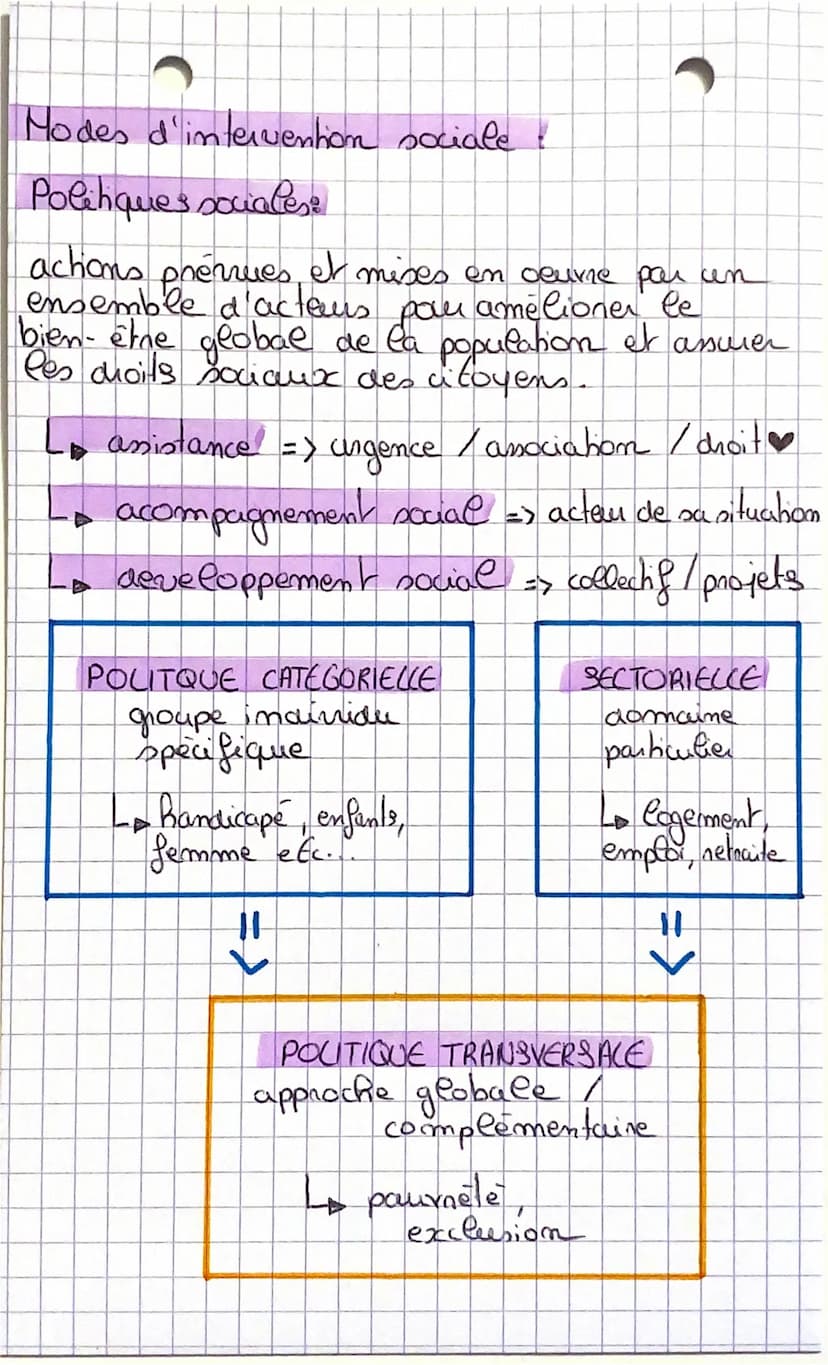 Modes d'intervention sociale :
Politiques sociales :
actions prévues et mises en oeuvre par un
ensemble d'acteurs pour améliorer le
bien-être global de la population et assurer
les droits sociaux des citoyens.
↳ assistance => urgence / association / droit ♥
↳ acompagnement social => acteur de sa situation
↳ developpement social => collectif / projets
POLITQUE CATÉGORIELLE
groupe individu
spécifique
↳ handicapé, enfants,
femme etc...
SECTORIELLE
domaine
particulier
↳ logement,
emploi, retraite
POLITIQUE TRANSVERSALE
approche globale /
complémentaire
↳ pauvreté,
exclusion